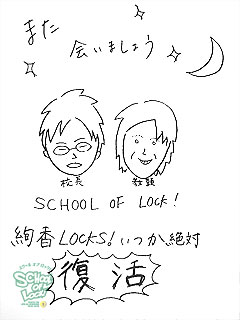 また
会いましょう
校長 教頭
SCHOOL OF LOCK!
絢香LOCKS! いつか、絶対
復活
SCHOOL
OF
LOCK!